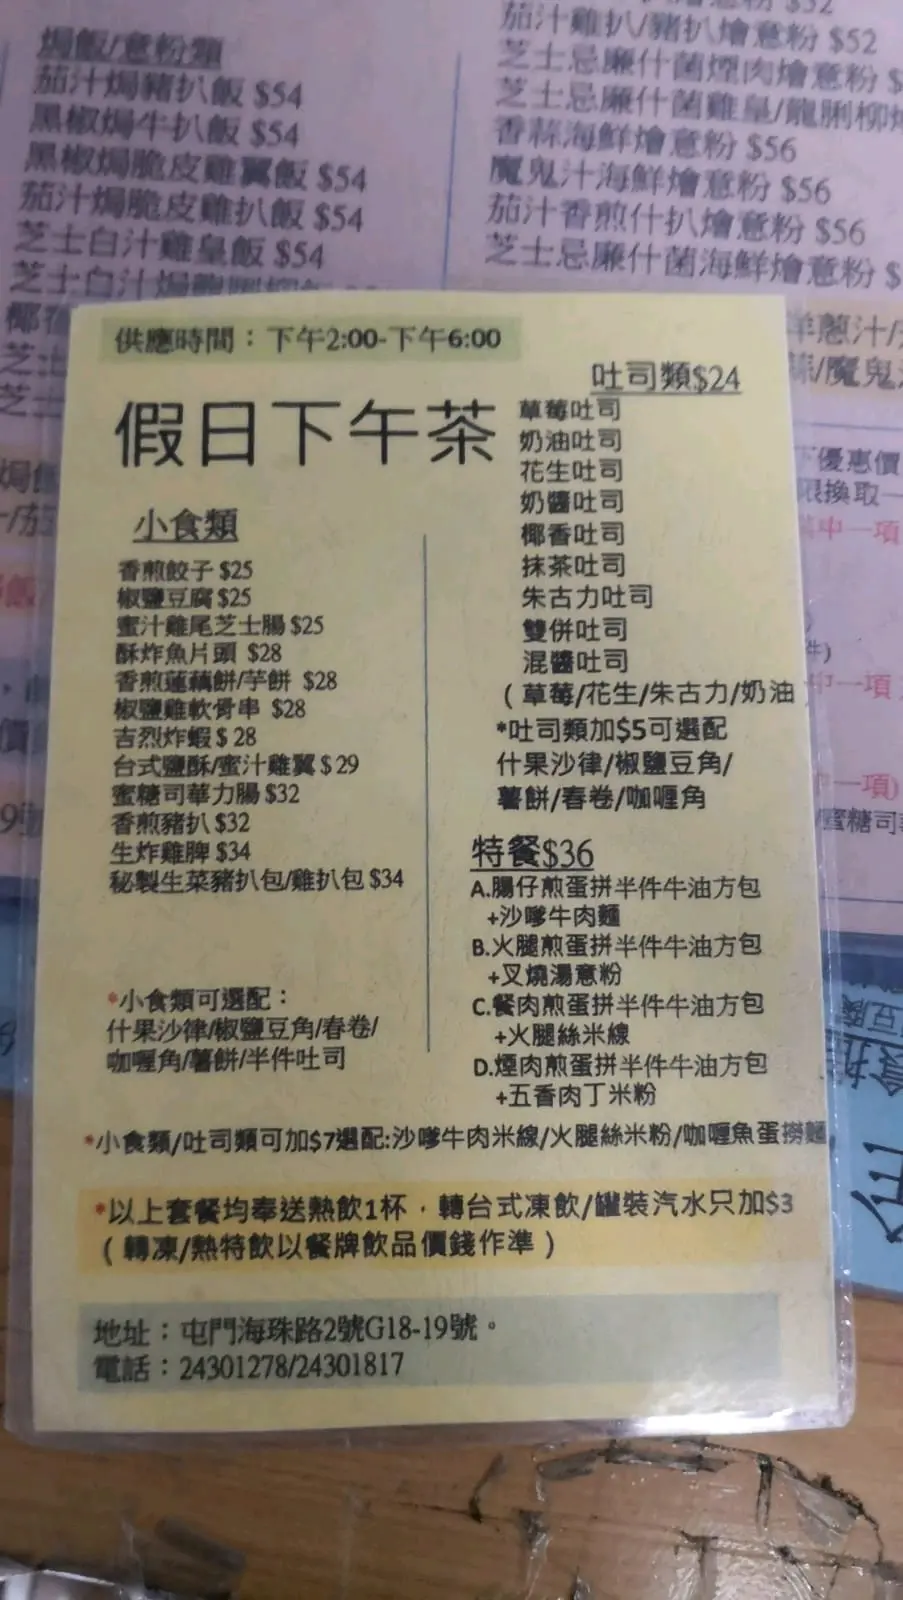 焗飯/意粉類
茄汁焗豬扒飯 $54
黑椒焗牛扒飯 $54
黑椒焗脆皮雞翼飯 $54
茄汁焗脆皮雞扒飯 $54
芝士白汁雞皇飯 $54
芝士白汁焗龍脷柳
椰
芝士
芝士
$52
茄汁雞扒/豬扒燴意粉 $52
芝士忌廉什菌煙肉燴意粉 $
芝士忌廉什菌雞皇/龍脷柳
香蒜海鮮燴意粉 $56
魔鬼汁海鮮燴意粉 $56
茄汁香煎什扒燴意粉 $56
芝士忌廉什菌海鮮燴意粉 $
洋蔥汁/
/魔鬼
優惠價
換取一
中一項
件)
中一項
中一項)
/蜜糖司
供應時間：下午2:00-下午6:00
假日下午茶
小食類
香煎餃子 $25
椒鹽豆腐 $25
蜜汁雞尾芝士腸 $25
酥炸魚片頭 $28
香煎蓮藕餅/芋餅 $28
椒鹽雞軟骨串 $28
吉烈炸蝦 $ 28
台式鹽酥/蜜汁雞翼 $ 29
蜜糖司華力腸 $32
香煎豬扒 $32
生炸雞脾 $34
秘製生菜豬扒包/雞扒包 $34
*小食類可選配：
什果沙律/椒鹽豆角/春卷/
咖喱角/薯餅/半件吐司
吐司類$24
草莓吐司
奶油吐司
花生吐司
奶醬吐司
椰香吐司
抹茶吐司
朱古力吐司
雙併吐司
混醬吐司
（草莓/花生/朱古力/奶油
*吐司類加$5可選配
什果沙律/椒鹽豆角/
薯餅/春卷/咖喱角
特餐$36
A.腸仔煎蛋拼半件牛油方包
+沙嗲牛肉麵
B.火腿煎蛋拼半件牛油方包
+叉燒湯意粉
C.餐肉煎蛋拼半件牛油方包
+火腿絲米線
D.煙肉煎蛋拼半件牛油方包
+五香肉丁米粉
*小食類/吐司類可加$7選配:沙嗲牛肉米線/火腿絲米粉/咖喱魚蛋撈麵
*以上套餐均奉送熱飲1杯，轉台式凍飲/罐裝汽水只加$3
（轉凍/熱特飲以餐牌飲品價錢作準）
地址：屯門海珠路2號G18-19號。
電話：24301278/24301817